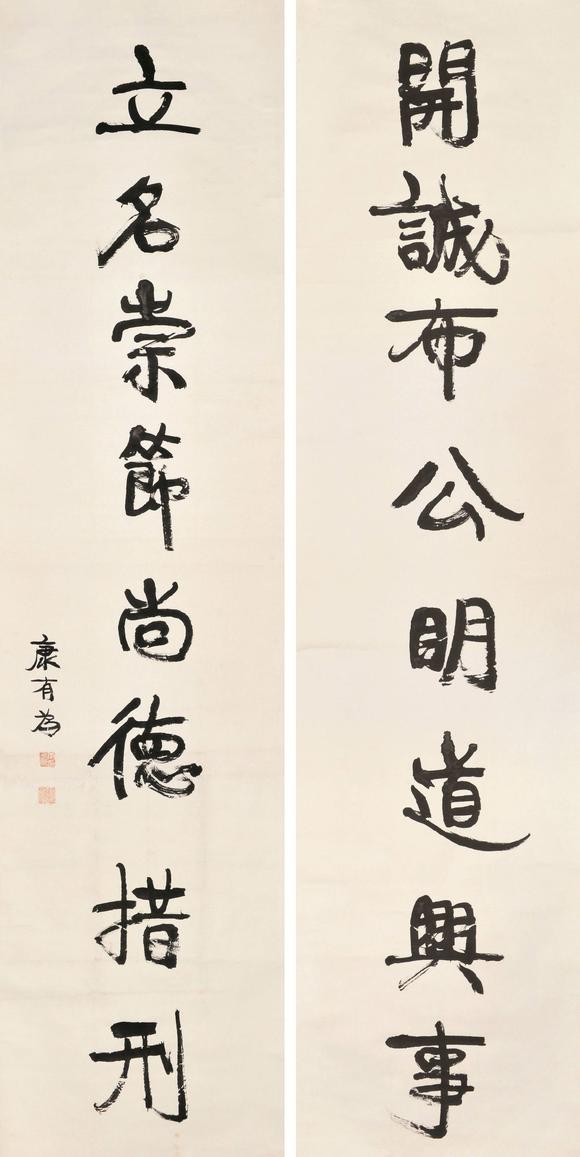 開誠布公明道興事
立名崇節尚德措刑
康有為